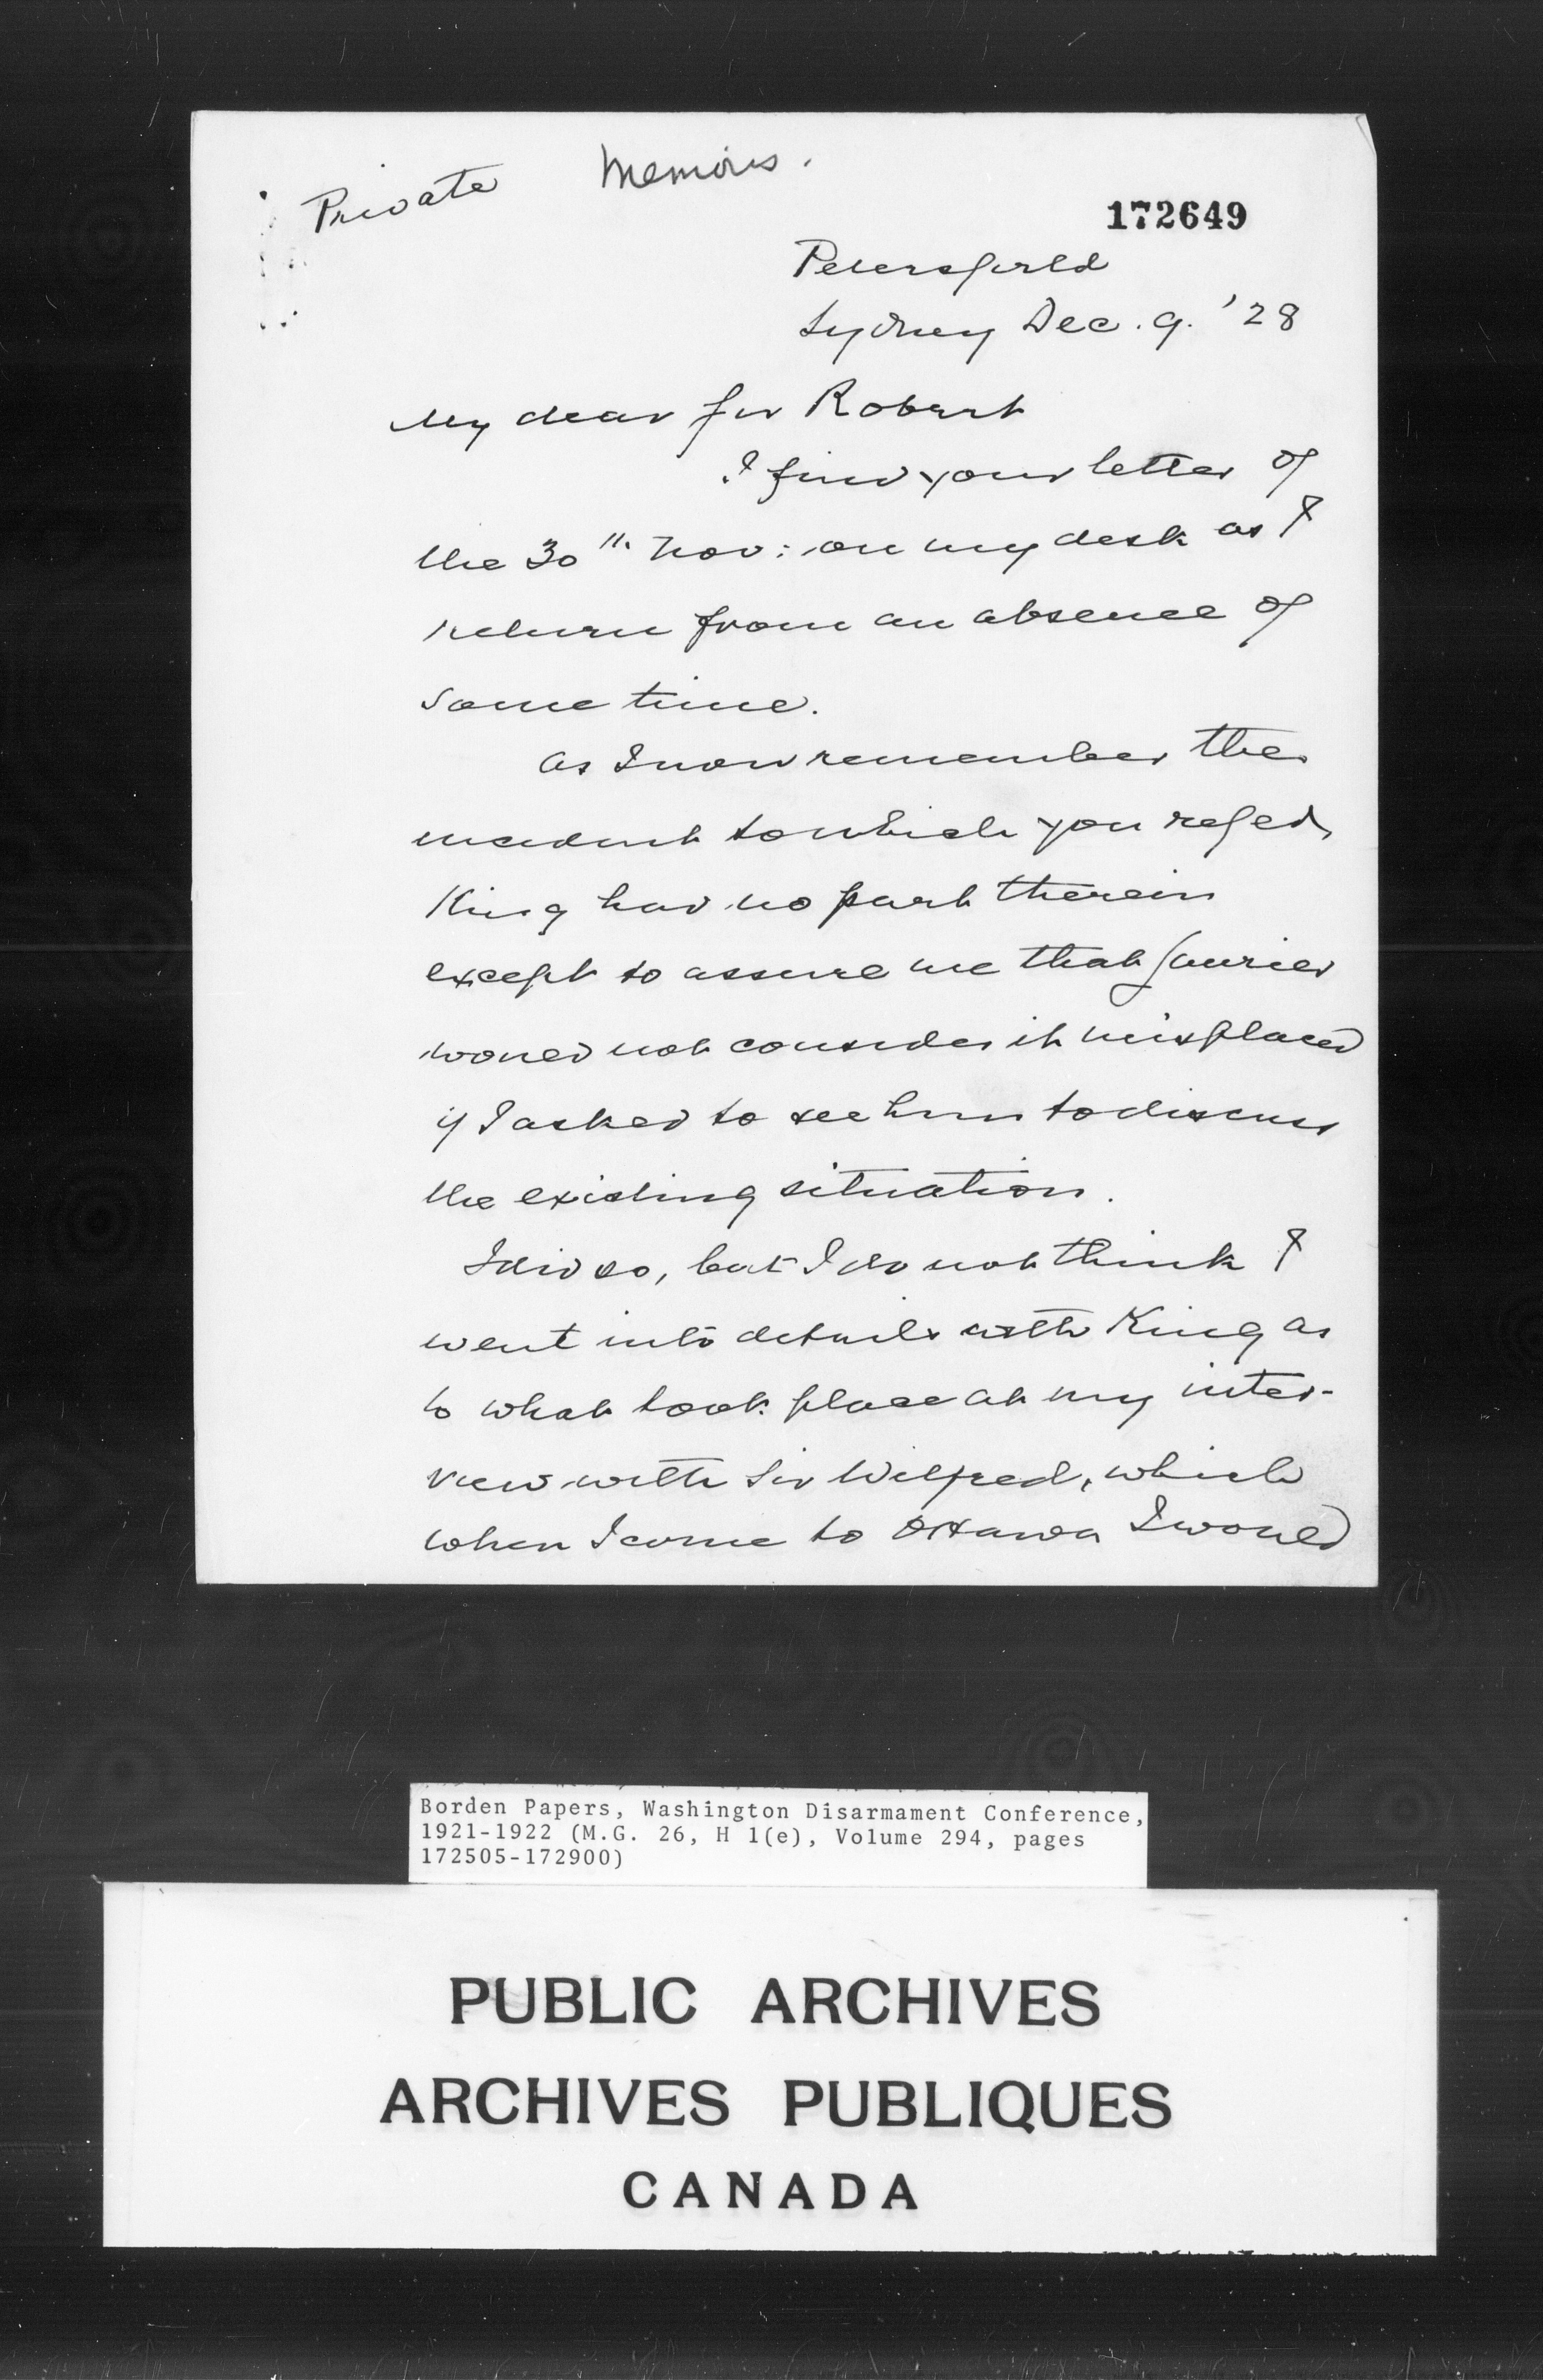 Private Memoirs.
172649
Petersfield
Sydney Dec. 9. '28
My dear Sir Robert
I find your letter of
the 30th Nov: on my desk as I
return from an absence of
some time.
As I now remember the
incident to which you refer,
King had no part therein
except to assure me that Laurier
would not consider it misplaced
if I asked to see him to discuss
the existing situation.
I did so, but I do not think I
went into details with King as
to what took place at my inter-
view with Sir Wilfred, which
when I come to Ottawa I would
Borden Papers, Washington Disarmament Conference,
1921-1922 (M.G. 26, H 1(e), Volume 294, pages
172505-172900)
PUBLIC ARCHIVES
ARCHIVES PUBLIQUES
CANADA